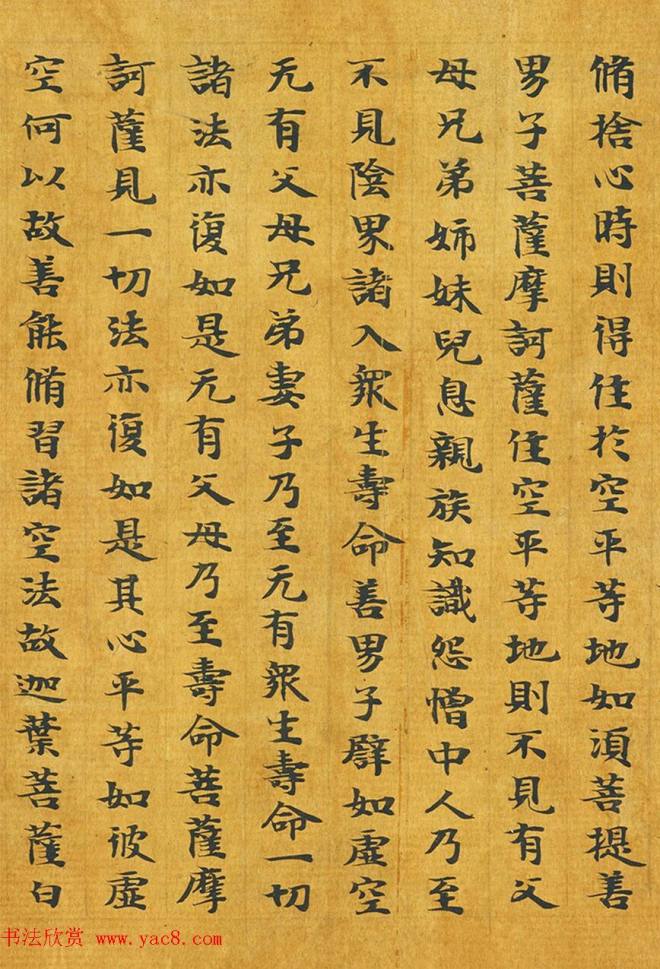 脩捨心時則得住於空平等地如湏菩提善
男子菩薩摩訶薩住空平等地則不見有父
母兄弟姉妹兒息親族知識怨憎中人乃至
不見陰界諸入衆生壽命善男子譬如虛空
无有父母兄弟妻子乃至无有衆生壽命一切
諸法亦復如是无有父母乃至壽命菩薩摩
訶薩見一切法亦復如是其心平等如彼虛
空何以故善能脩習諸空法故迦葉菩薩白
书法欣赏 www.yac8.com